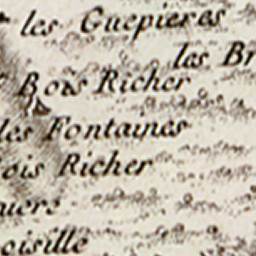 les Guepieres
les Br
Bois Richer
les Fontaines
ois Richer
oisille